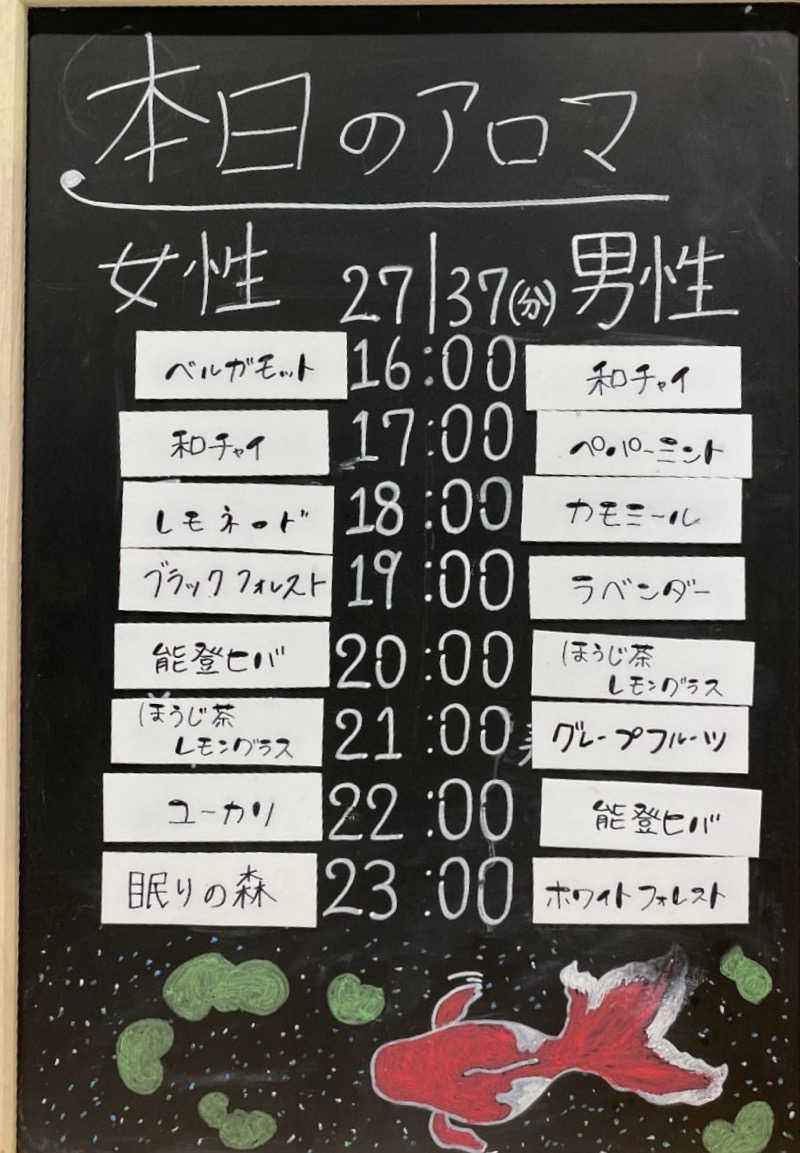 本日のアロマ
女性 27|37(分) 男性
ベルガモット 16:00 和チャイ
和チャイ 17:00 ペパーミント
レモネード 18:00 カモミール
ブラックフォレスト 19:00 ラベンダー
能登ヒバ 20:00 ほうじ茶
レモングラス
ほうじ茶
レモングラス 21:00 グレープフルーツ
ユーカリ 22:00 能登ヒバ
眠りの森 23:00 ホワイトフォレスト